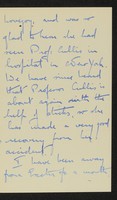 lovejoy, and was so
glad to hear she had
been Prof. Cullis in
hospital in
We have since heard
that Professor Cullis is
about again with the
help of sticks, or she
has made a very good
recovery from her
accident.
I have been away
from Boston for a month